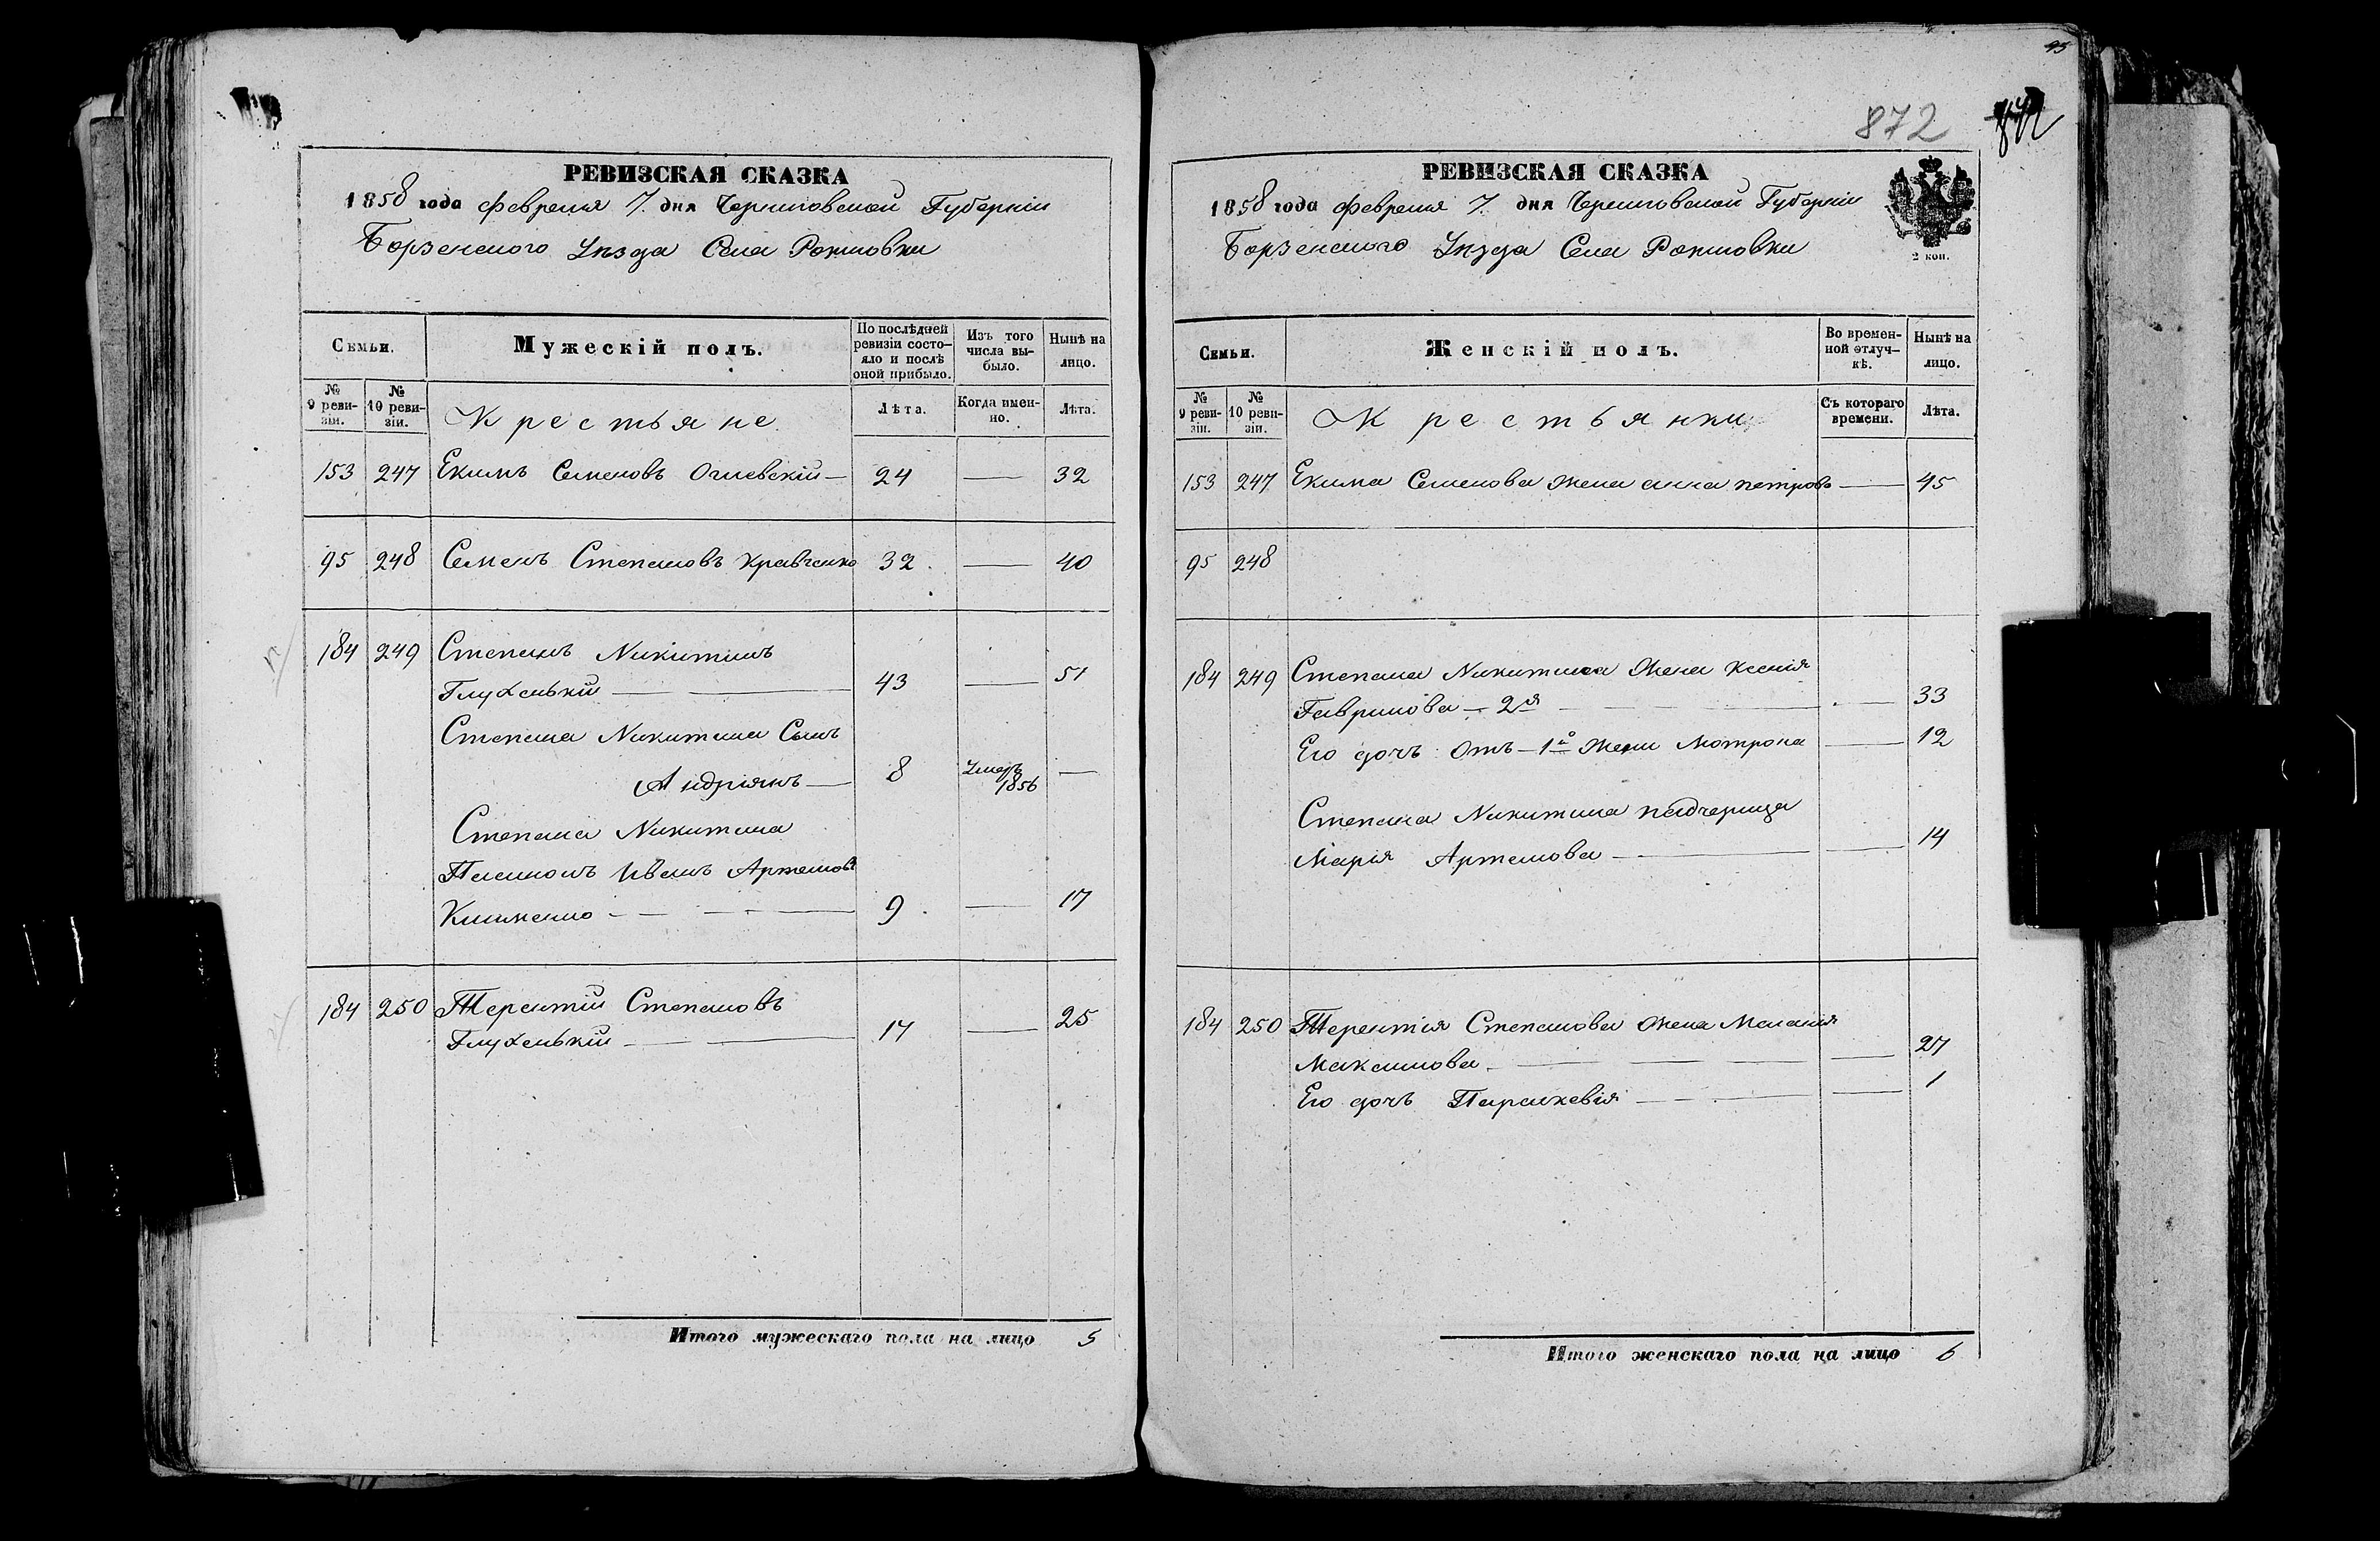 РЕВИЗСКАЯ СКАЗКА
1858 года Февраля 7. дня Черниговской Губерніи
Борзенского Уѣзда Села
Семьи.
Мужескій полъ.
По послѣдней ревизіи состо-яло и послѣ оной прибыло.
Изъ того числа вы-было.
Нынѣ на лицо.
№ 9 реви-зіи.
№ 10 реви-зіи.
Крестьяне
Лѣта.
Когда имен-но.
Лѣта.
153 247 Екимъ Семеновъ Огіевскій — 24 — 32
95 248 Семенъ Степановъ Кравченко 32. — 40
184 249 Степанъ Никитинъ
Глухенькій — 43 — 51
Степана Никитина Сынъ
Андріянъ — 8 Умеръ 1856 —
Степана Никитина
Пасинокъ Иванъ Артемовъ
9. — 17
184 250 Терентій Степановъ
Глухенькій — 17 — 25
Итого мужескаго пола на лицо 5
95
872
РЕВИЗСКАЯ СКАЗКА
1858 года Февраля 7. дня Черниговской Губерніи
2 коп.
Борзенского Уѣзда Села
Семьи.
Женскій полъ.
Во времен-ной отлуч-кѣ.
Нынѣ на лицо.
№ 9 реви-зіи.
№ 10 реви-зіи.
Крестьянки
Съ котораго времени.
Лѣта.
153 247 Екима Семенова жена анна петрова — 45
95 248
184 249 Степана Никитина Жена Ксенія
Гаврилова — 2я — 33
Его дочь отъ — 1й жены Мотрона — 12
Степана Никитина падчерица
Марія Артемова — 14
184 250 Терентія Степанова жена Меланія
Максимова — 27
Его дочь Параскевія — 1
Итого женскаго пола на лицо 6